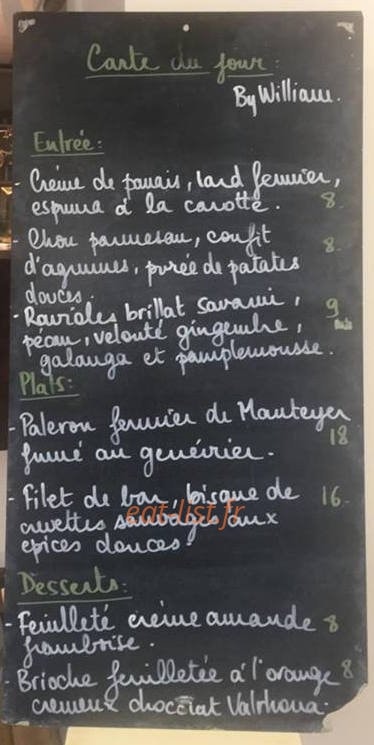 Carte du jour :
By William.
Entrée :
- Crème de panais, lard fermier,
espuma à la carotte. 8.
- Chou parmesan, confit 8.
d'agrumes, purée de patates
douces.
- Ravioles brillat savarin, 9
pécan, velouté gingembre,
galanga et pamplemousse.
Plats :
- Paleron fermier de Manteyer
fumé au genévrier. 18
- Filet de bar, bisque de 16.
crevettes sauvages aux
epices douces.
eat-list.fr
Desserts :
- Feuilleté crème amande 8
framboise.
- Brioche feuilletée à l'orange 8
cremeux chocolat Valrhona.